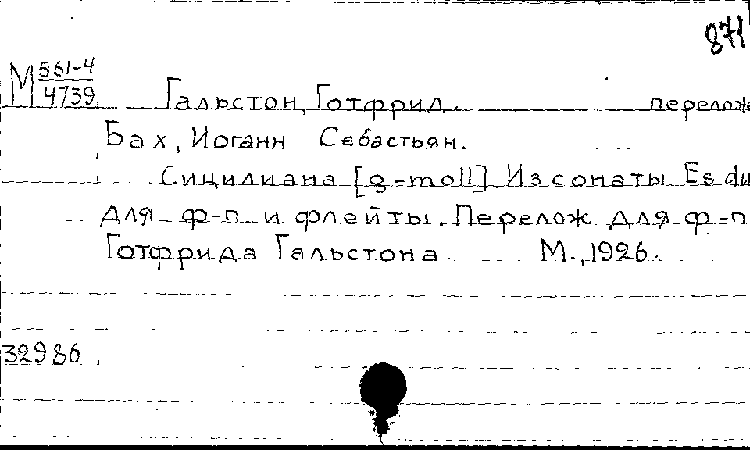 871
М 561-4
4739
Гальстон, Готфрид. перелож
Бах, Иоганн Себастьян.
Сицилиана [g-moll] Из сонаты Es du
для ф-п и флейты. Перелож для ф-п
Готфрида Гальстона М., 1926.
32986